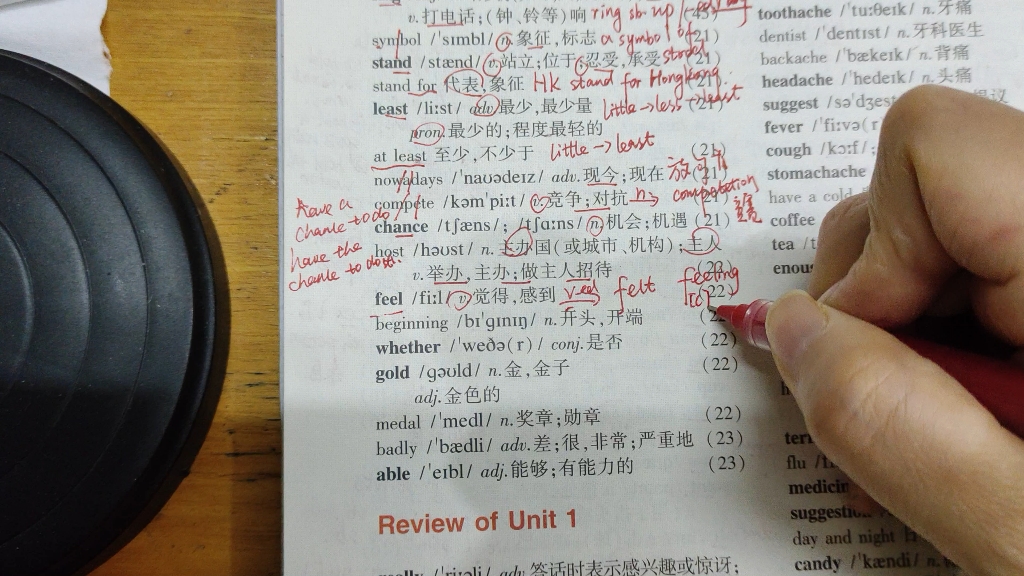 v.打电话;(钟、铃等)响 ring sb. up
symbol /ˈsɪmbl/ n.象征,标志 a symbol of (21)
stand /stænd/ v.站立;位于;忍受,承受 stood (21)
stand for 代表,象征 HK stand for HongKong. (21)
least /liːst/ adv.最少,最少量 little→less→least (21)
pron.最少的;程度最轻的
at least 至少,不少于 little→least (21)
nowadays /ˈnaʊədeɪz/ adv.现今;现在 (21)
compete /kəmˈpiːt/ v.竞争;对抗 n→ competation (21)
have a
chance to do
chance /tʃæns/; /tʃɑːns/ n.机会;机遇 (21)
have the
chance to do sth.
host /həʊst/ n.主办国(或城市、机构);主人
v.举办,主办;做主人招待 (22)
feel /fiːl/ v.觉得,感到 v-ed felt feeling (22)
beginning /bɪˈɡɪnɪŋ/ n.开头,开端
whether /ˈweðə(r)/ conj.是否 (22)
gold /ɡəʊld/ n.金,金子 (22)
adj.金色的
medal /ˈmedl/ n.奖章;勋章 (22)
badly /ˈbædli/ adv.差;很,非常;严重地 (23)
able /ˈeɪbl/ adj.能够;有能力的 (23)
Review of Unit 1
really /ˈriːəli/ adv.答话时表示感兴趣或惊讶;
toothache /ˈtuːθeɪk/ n.牙痛
dentist /ˈdentɪst/ n.牙科医生
backache /ˈbækeɪk/ n.背痛
headache /ˈhedeɪk/ n.头痛
suggest /səˈdʒest
fever /ˈfiːvə(r)
cough /kɔːf/;
stomachache
have a cold
coffee
tea
flu
medicin
suggestion
day and night
candy /ˈkændi/ n.